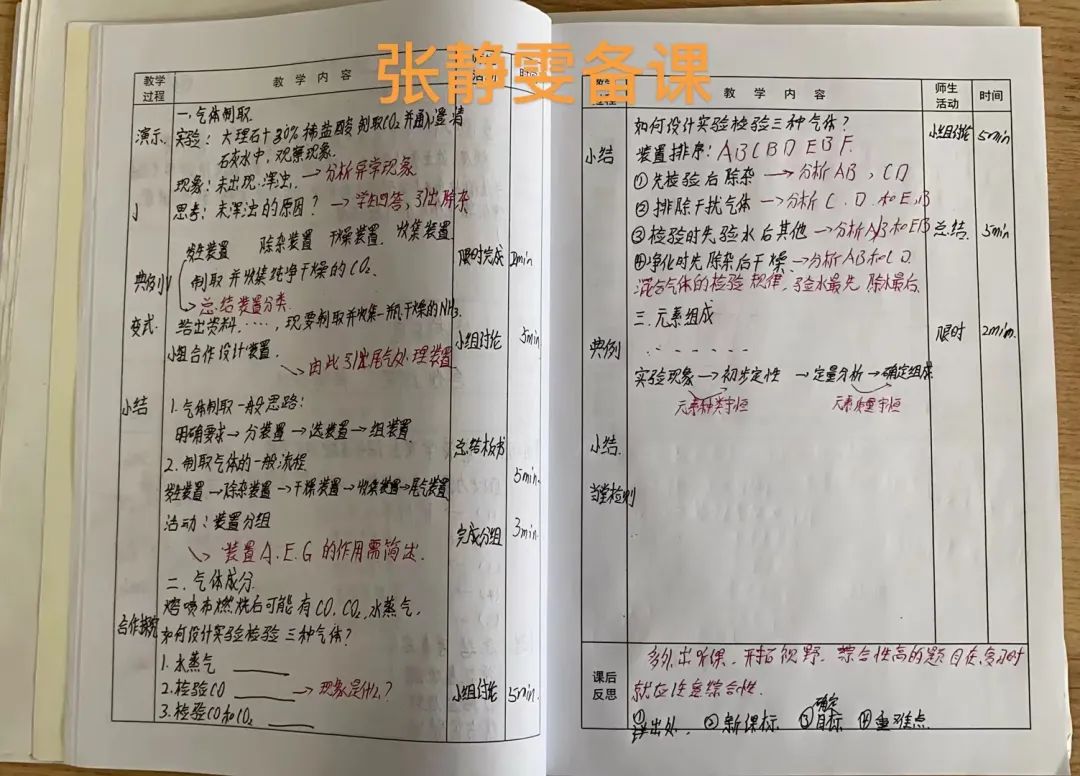 张静雯备课
教学过程
教学内容
时间
一、气体制取
演示
实验：大理石+30%稀盐酸制取CO₂并通入澄清
石灰水中，观察现象.
现象：未出现浑浊. →分析异常现象
思考：未浑浊的原因？ →学生回答，引出除杂
发生装置 除杂装置 干燥装置 收集装置
典例
制取并收集纯净干燥的CO₂.
限时完成
2min
→总结装置分类.
变式.
给出资料……，现要制取并收集一瓶干燥的NH₃.
小组合作设计装置.
小组讨论
5min
→由此引出尾气处理装置
小结
1.气体制取一般思路：
明确要求→分装置→选装置→组装置.
2.制取气体的一般流程
总结板书
5min.
发生装置→除杂装置→干燥装置→收集装置→尾气装置
活动：装置分组
完成分组
3min.
→装置A.E.G的作用需简出.
二、气体成分.
熔喷布燃烧后可能有CO.CO₂.水蒸气.
合作探究
如何设计实验检验三种气体？
1.水蒸气
2.检验CO →现象是什么？
小组讨论
5min.
3.检验CO和CO₂
教学内容
师生活动
时间
如何设计实验检验三种气体？
小组讨论
5min
小结
装置排序：ABCBDEBF.
①先检验后除杂 →分析AB，CD
②排除干扰气体 →分析C.D.和E.B
③检验时先验水后其他 →分析AB和EB
总结.
5min
④净化时先除杂后干燥→分析AB和CD
混合气体的检验规律，验水最先 除水最后.
三.元素组成
限时
2min.
典例
......
实验现象→初步定性→定量分析→确定组成
元素种类守恒
元素质量守恒
小结.
当堂检测
课后反思
多外出听课，开拓视野，综合性高的题目在复习时
就应注意综合性.
确定
②新课标 ③目标 ④重难点.